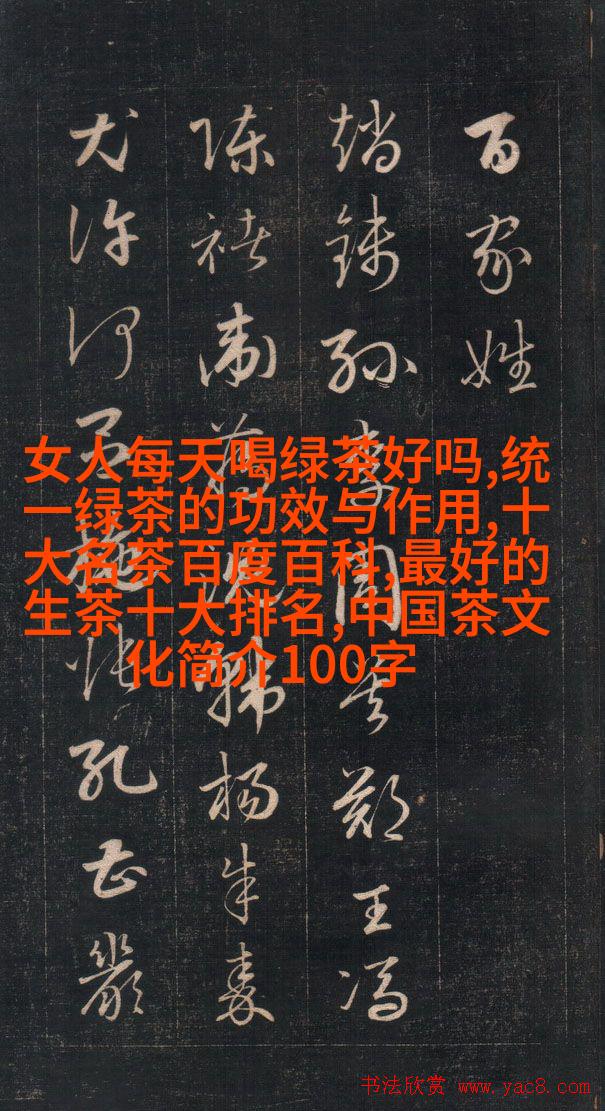 百家姓
趙錢孫李周吳鄭王馮
陳褚衛蔣沈韓楊朱秦
尤許何呂施張孔曹嚴
女人每天喝绿茶好吗,统
一绿茶的功效与作用,十
大名茶百度百科,最好的
生茶十大排名,中国茶文
化简介100字
书法欣赏 www.yac8.com